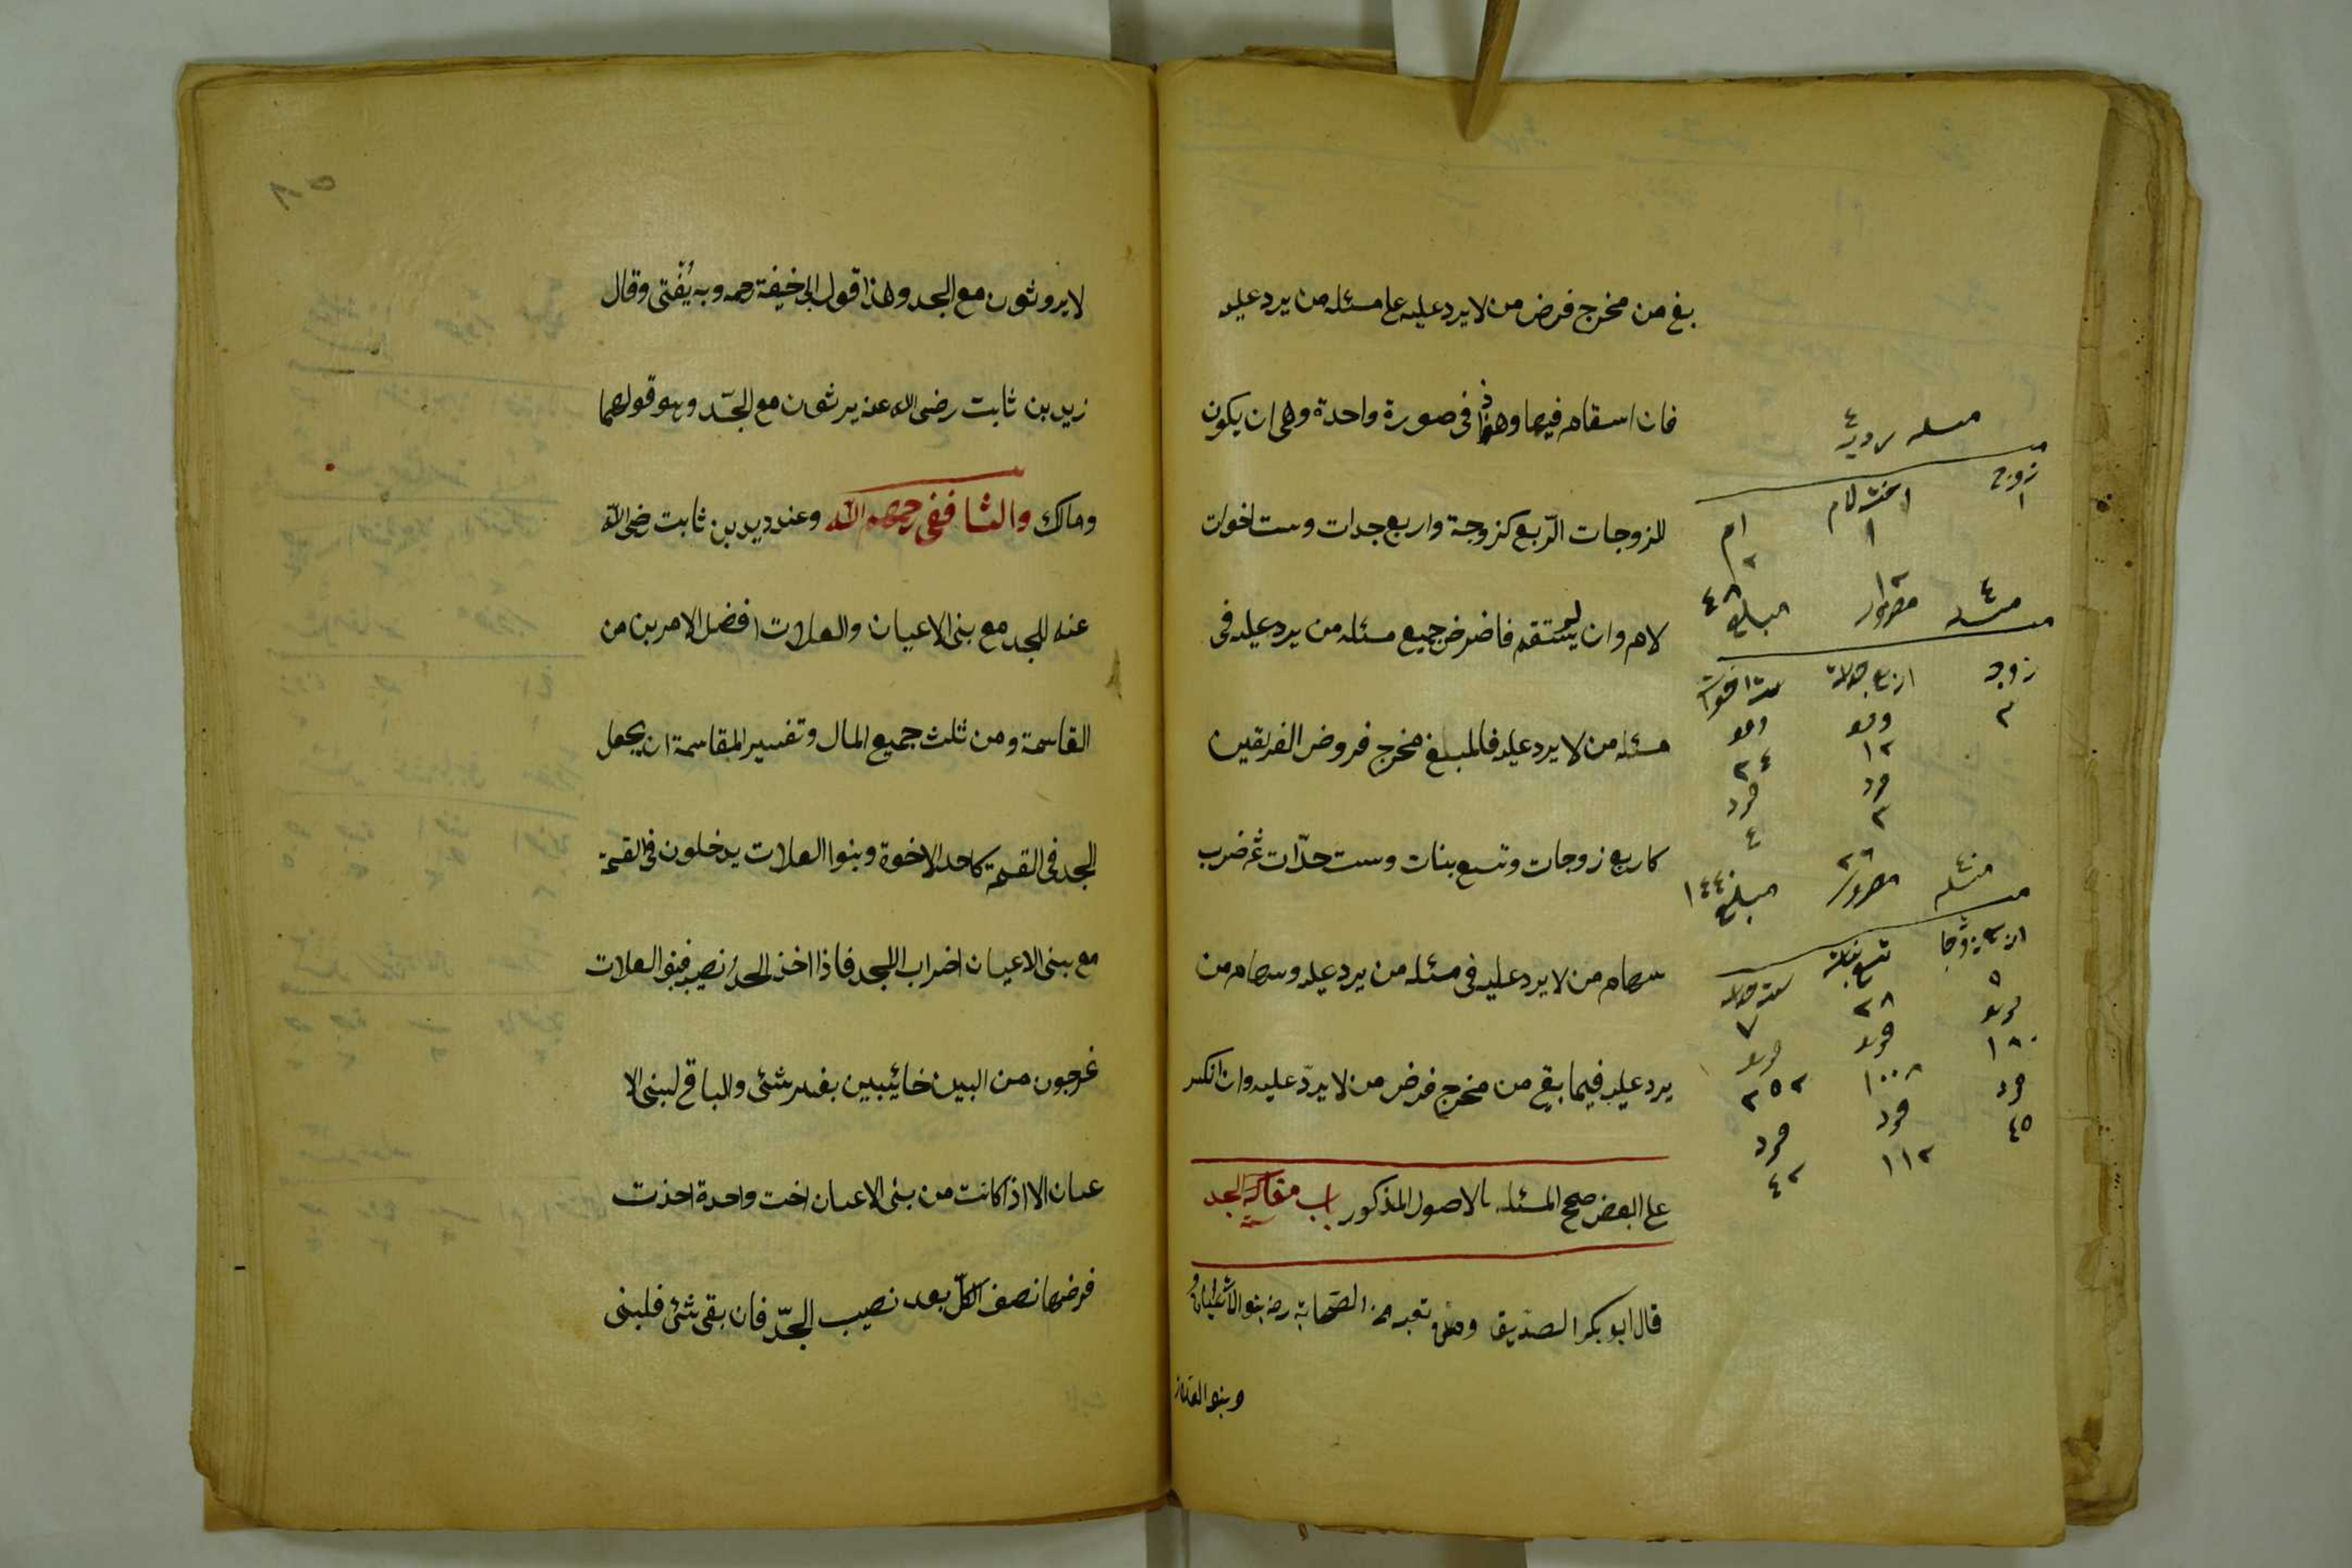 بقى من مخرج فرض من لا يرد عليه على مسئله من يرد عليه
فان استقام فيها وهذا فى صورة واحدة وهى ان يكون
للزوجات الرّبع كزوجة واربع جدات وست اخوات
لام وان لم يستقم فاضرض جميع مسئله من يرد عليه فى
مسئله من لا يرد عليه فالمبلغ مخرج فروض الفريقين
كاربع زوجات وتسع بنات وست جدّات ثم ضرب
سهام من لا يرد عليه فى مسئله من يرد عليه وسهام من
يرد عليه فيما بقى من مخرج فرض من لا يردّ عليه وان انكسر
على البعض صحح المسئله بالاصول المذكور باب مقاسمة الجد
قال ابو بكر الصدّيق ومن تبعه من الصّحابة رضـ بنو الاعيان و
وبنو العلات
مسله رديه ٤
زوج اخت لام ام
١ ١ ٢
مسئله ٤ مضروب ١٢ مبلغ ٤٨
زوجه اربع جدات ست اخوات
٣
١٢ ٢٤
فرد فرد
٣ ٤
مسئله مضروب ٣٦ مبلغ ١٤٤٠
اربع زوجات تسع بنات ست جدات
٥ ٢٨ ٧
١٨٠ ١٠٠٨ ٢٥٢
فرد فرد فرد
٤٥ ١١٢ ٤٢
٨٥
لا يروثون مع الجد وهذا قول ابى حنيفة رحمه وبه يُفْتى وقال
زيد بن ثابت رضى الله عنه يرثون مع الجّد وهو قولهما
ومالك والشافعى رحمهم الله وعند زيد بن ثابت رضى الله
عنه للجد مع بنى الاعيان والعلات افضل الامرين من
القاسمة ومن ثلث جميع المال وتفسير المقاسمة ان يجعل
الجد فى القسمة كاحد الاخوة وبنوا العلات يدخلون فى القسمة
مع بنى الاعيان اضرابا للجد فاذا اخذ الجد نصيبه فبنو العلات
يخرجون من البين خائيبين بغير شئى والباقى لبنى الا
عيان الا اذا كانت من بنى الاعيان اخت واحدة اخذت
فرضها نصف الكلّ بعد نصيب الجّد فان بقى شئى فلبنى